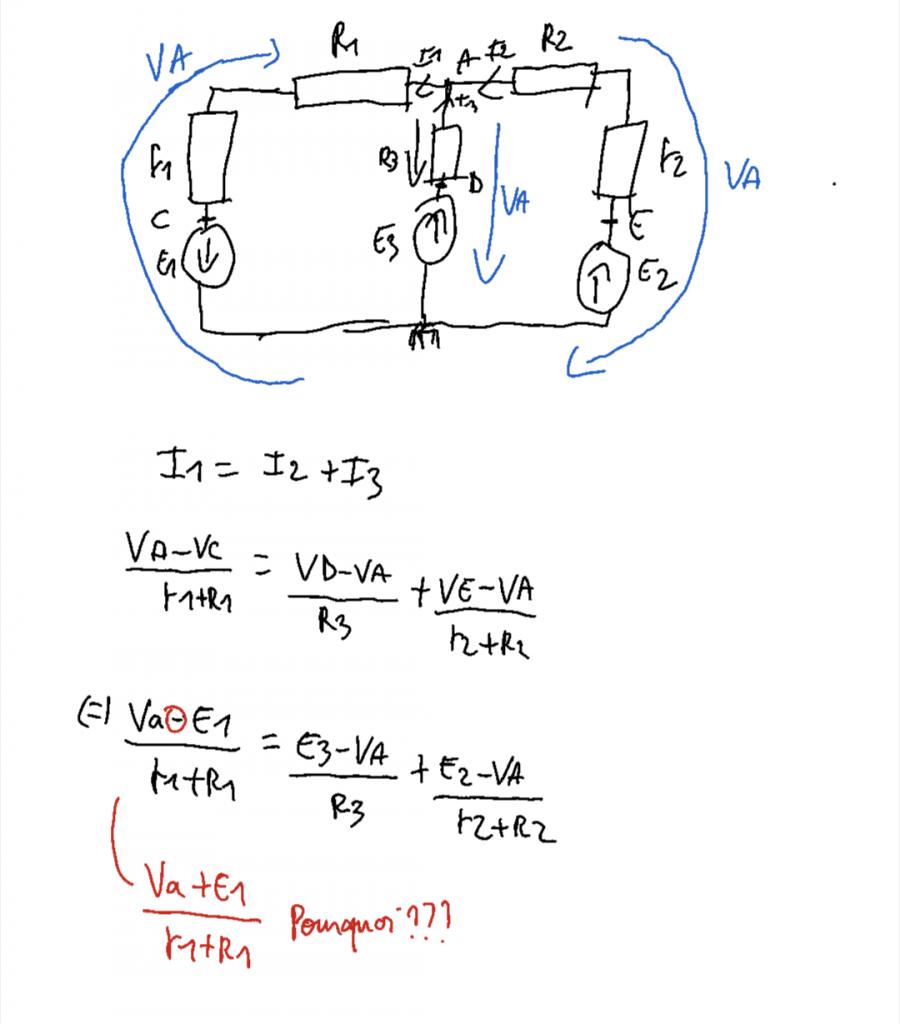 VA
R1
I1
A
I2
R2
r1
R3
I3
D
VA
r2
VA
C
E1
E3
E
E2
M
I1 = I2 + I3
VA-VC / r1+R1 = VD-VA / R3 + VE-VA / r2+R2
(=) Va-E1 / r1+R1 = E3-VA / R3 + E2-VA / r2+R2
Va+E1 / r1+R1 Pourquoi ???